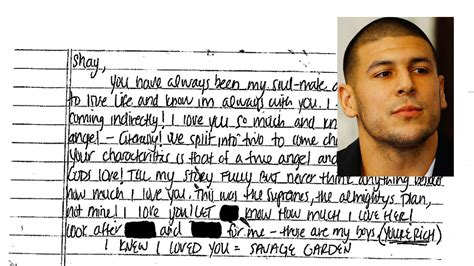 Shay,
you have always been my soul-mate
to live life and know im always with you. I
coming indirectly! I love you so much and kn
angel - literally! we split into two to come ch
Your characteristics is that of a true angel and
GODS love! Tell my story fully but never think anything beside
how much I love you. This was the supremes, the almightys plan,
not mine! I love you! Let know how much I love her!
look after and for me - those are my boys (YOURE RICH)
I KNEW I LOVED YOU = SAVAGE GARDEN